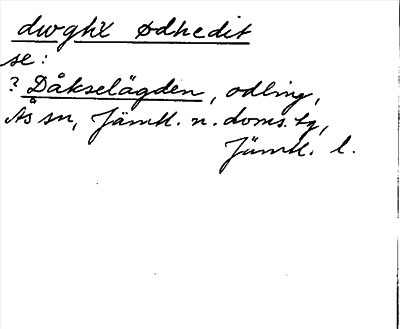 dwghx ødhedit
se:
? Dåkselägden, odling,
Ås sn, Jämtl. n. doms. tg,
Jämtl. l.